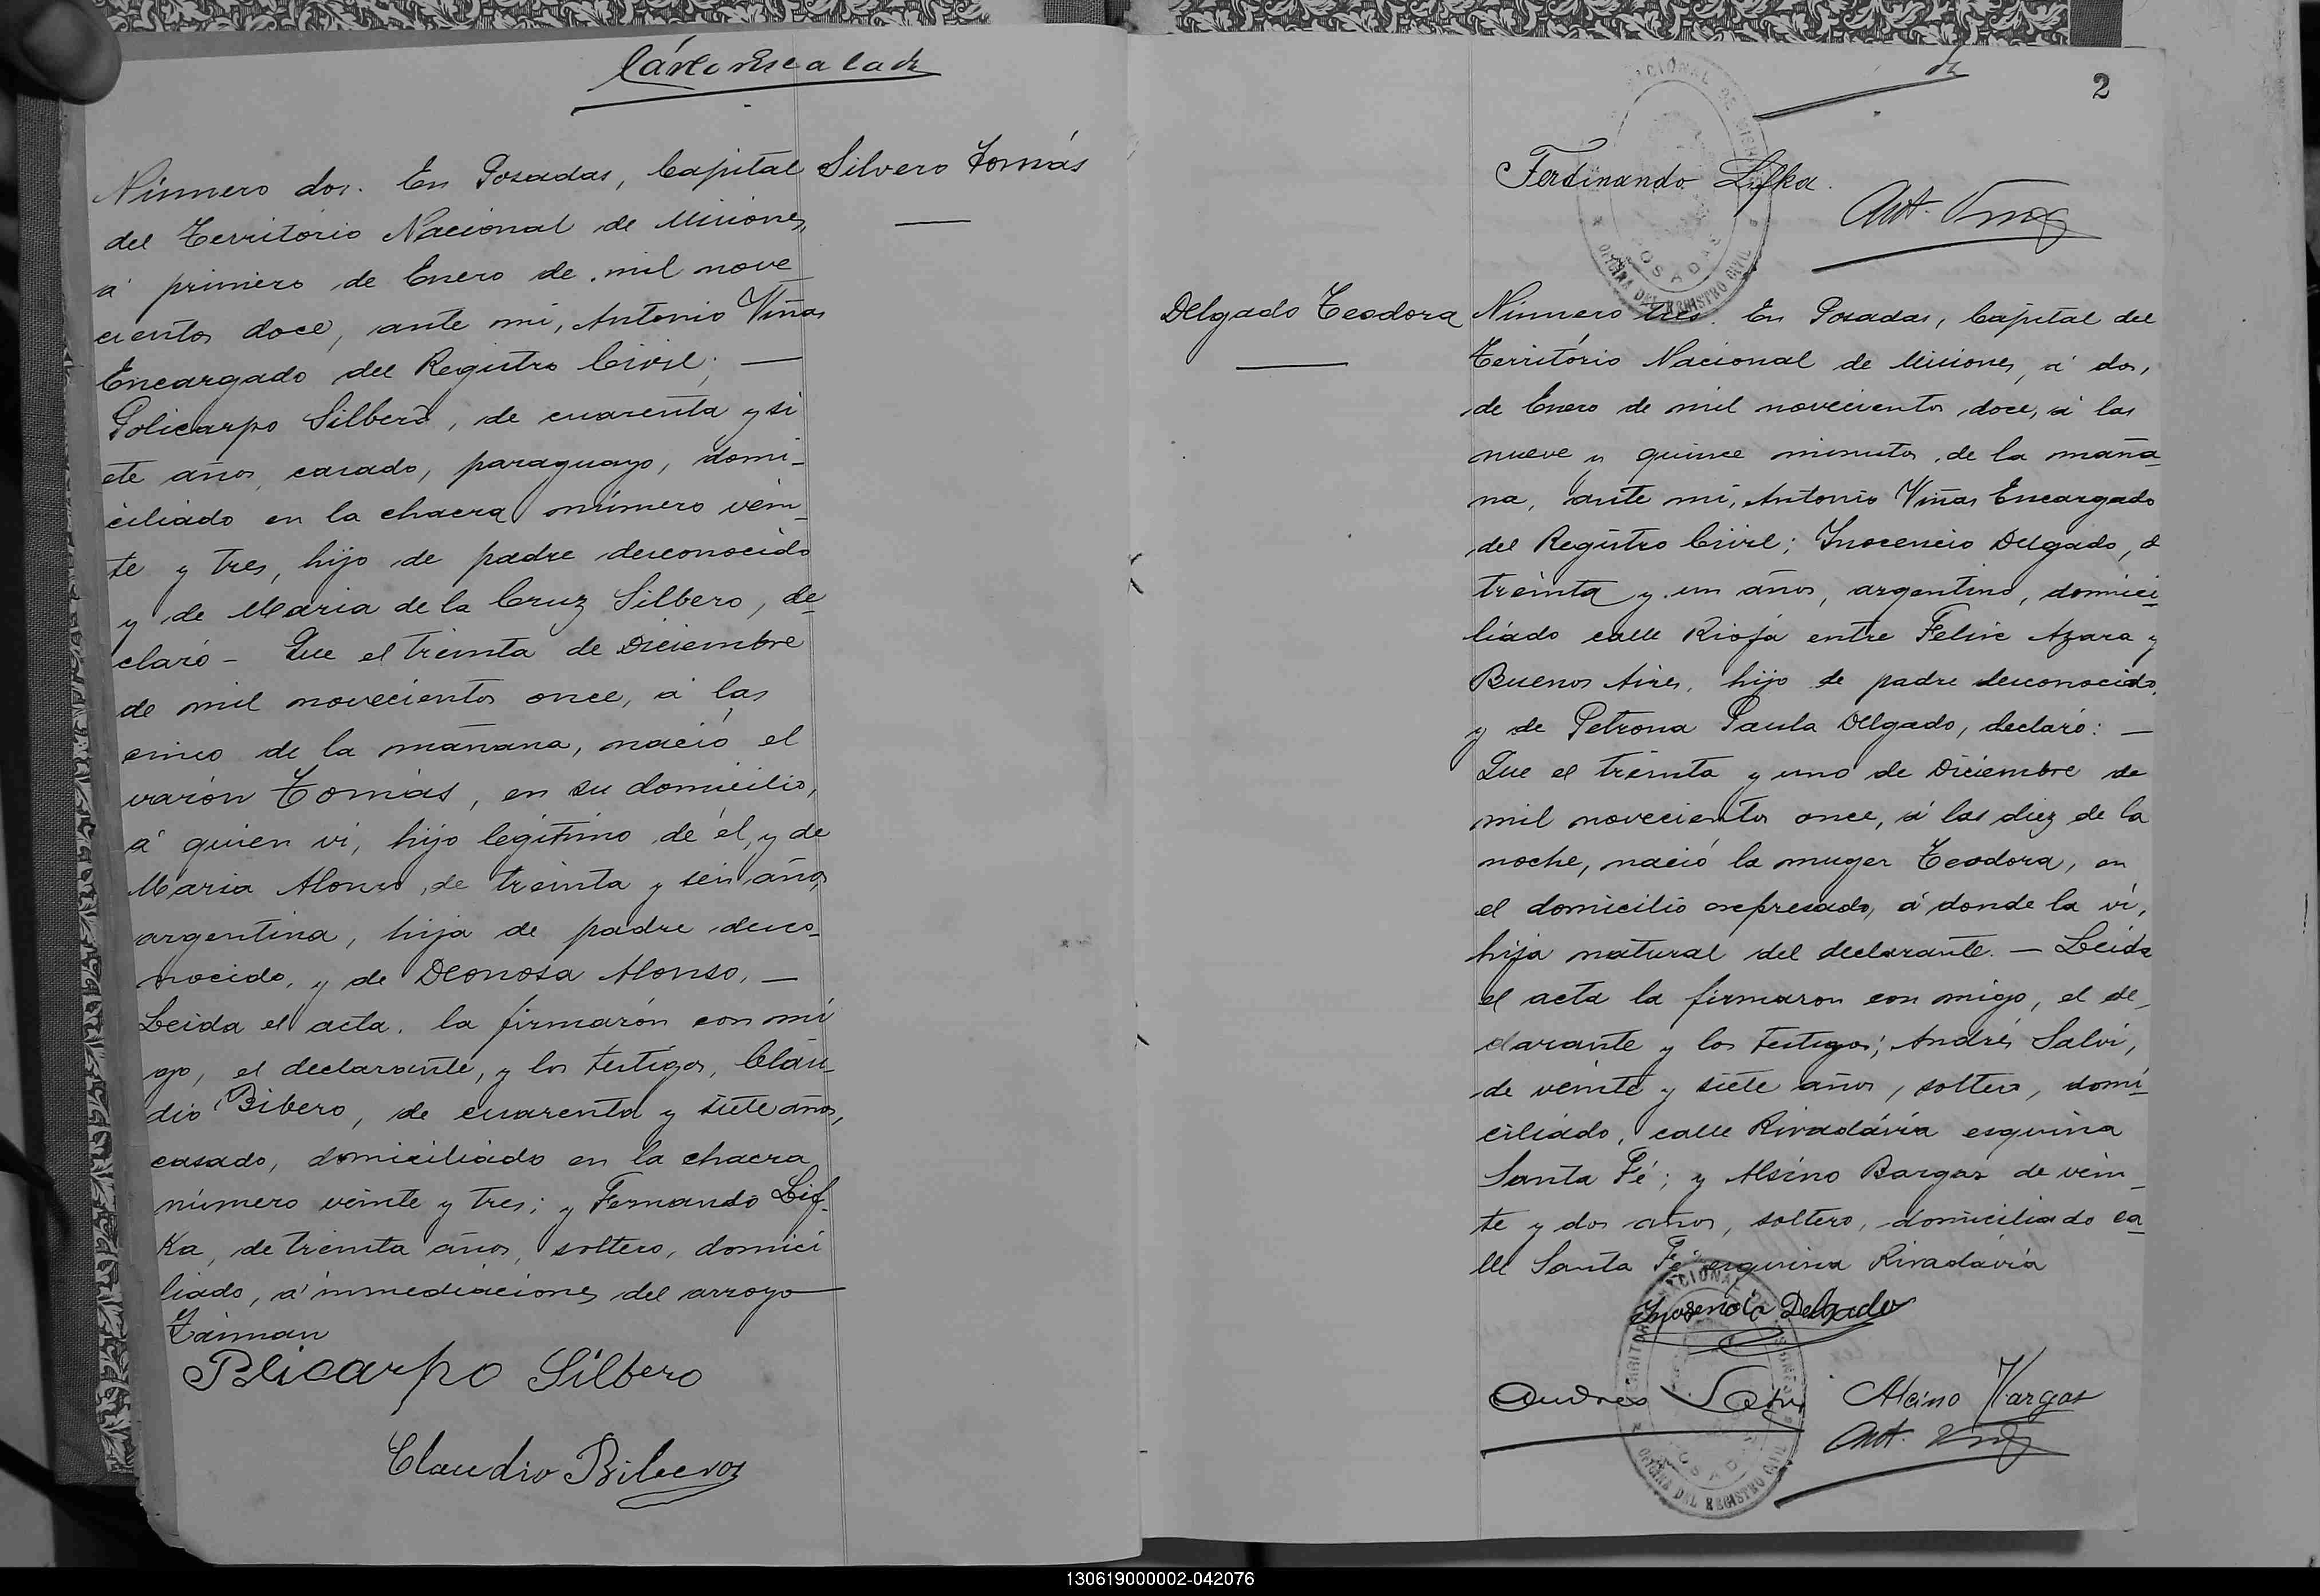 Carlo Escalada
Número dos. En Posadas, Capital
Silvero Tomás
del Território Nacional de Misiones,
á primero de Enero de mil nove
cientos doce, ante mi, Antonio Viñas
Encargado del Registro Civil; —
Policarpo Silbero, de cuarenta y si
ete años, casado, paraguayo, domi-
ciliado en la chacra número vein-
te y tres, hijo de padre desconocido
y de Maria de la Cruz Silbero, de-
claró - Que el treinta de Diciembre
de mil novecientos once, á las
cinco de la mañana, nació el
varón Tomás, en su domicilio,
á quien vi, hijo legítimo de él, y de
Maria Alonso, de treinta y seis años,
argentina, hija de padre desco-
nocido, y de Deonosa Alonso. —
Leida el acta, la firmarón con mi
go, el declarante, y los testigos, Cláu-
dio Bibero, de cuarenta y siete años,
casado, domiciliado en la chacra
número veinte y tres; y Fernando Lif-
Ka, de treinta años, soltero, domici
liado, á inmediaciones del arroyo
Zaiman
Policarpo Silbero
Claudio Biberos
2
Ferdinando Lifka.
Ant. Viñas
Delgado Teodora
Número tres. En Posadas, Capital del
Território Nacional de Misiones, á dos,
de Enero de mil novecientos doce, á las
nueve y quince minutos de la maña
na, ante mi, Antonio Viñas Encargado
del Registro Civil; Inocencio Delgado, d
treinta y un años, argentino, domici-
liado calle Rioja entre Felix Azara y
Buenos Aires, hijo de padre desconocido,
y de Petrona Paula Delgado, declaró: —
Que el treinta y uno de Diciembre de
mil novecientos once, á las diez de la
noche, nació la muger Teodora, en
el domicilio expresado, á donde la vi,
hija natural del declarante. — Leida
el acta la firmaron con migo, el de-
clarante y los testigos; Andrés Salvi,
de veinte y siete años, soltero, domi-
ciliado, calle Rivadávia esquina
Santa Fé; y Alsino Bargas de vein-
te y dos años, soltero, domiciliado ca-
lle Santa Fé esquina Rivadavia
Inosencio Delgado
Andres Salvi Alcino Vargas
Ant. Viñas
OFICINA DEL REGISTRO CIVIL
POSADAS
130619000002-042076